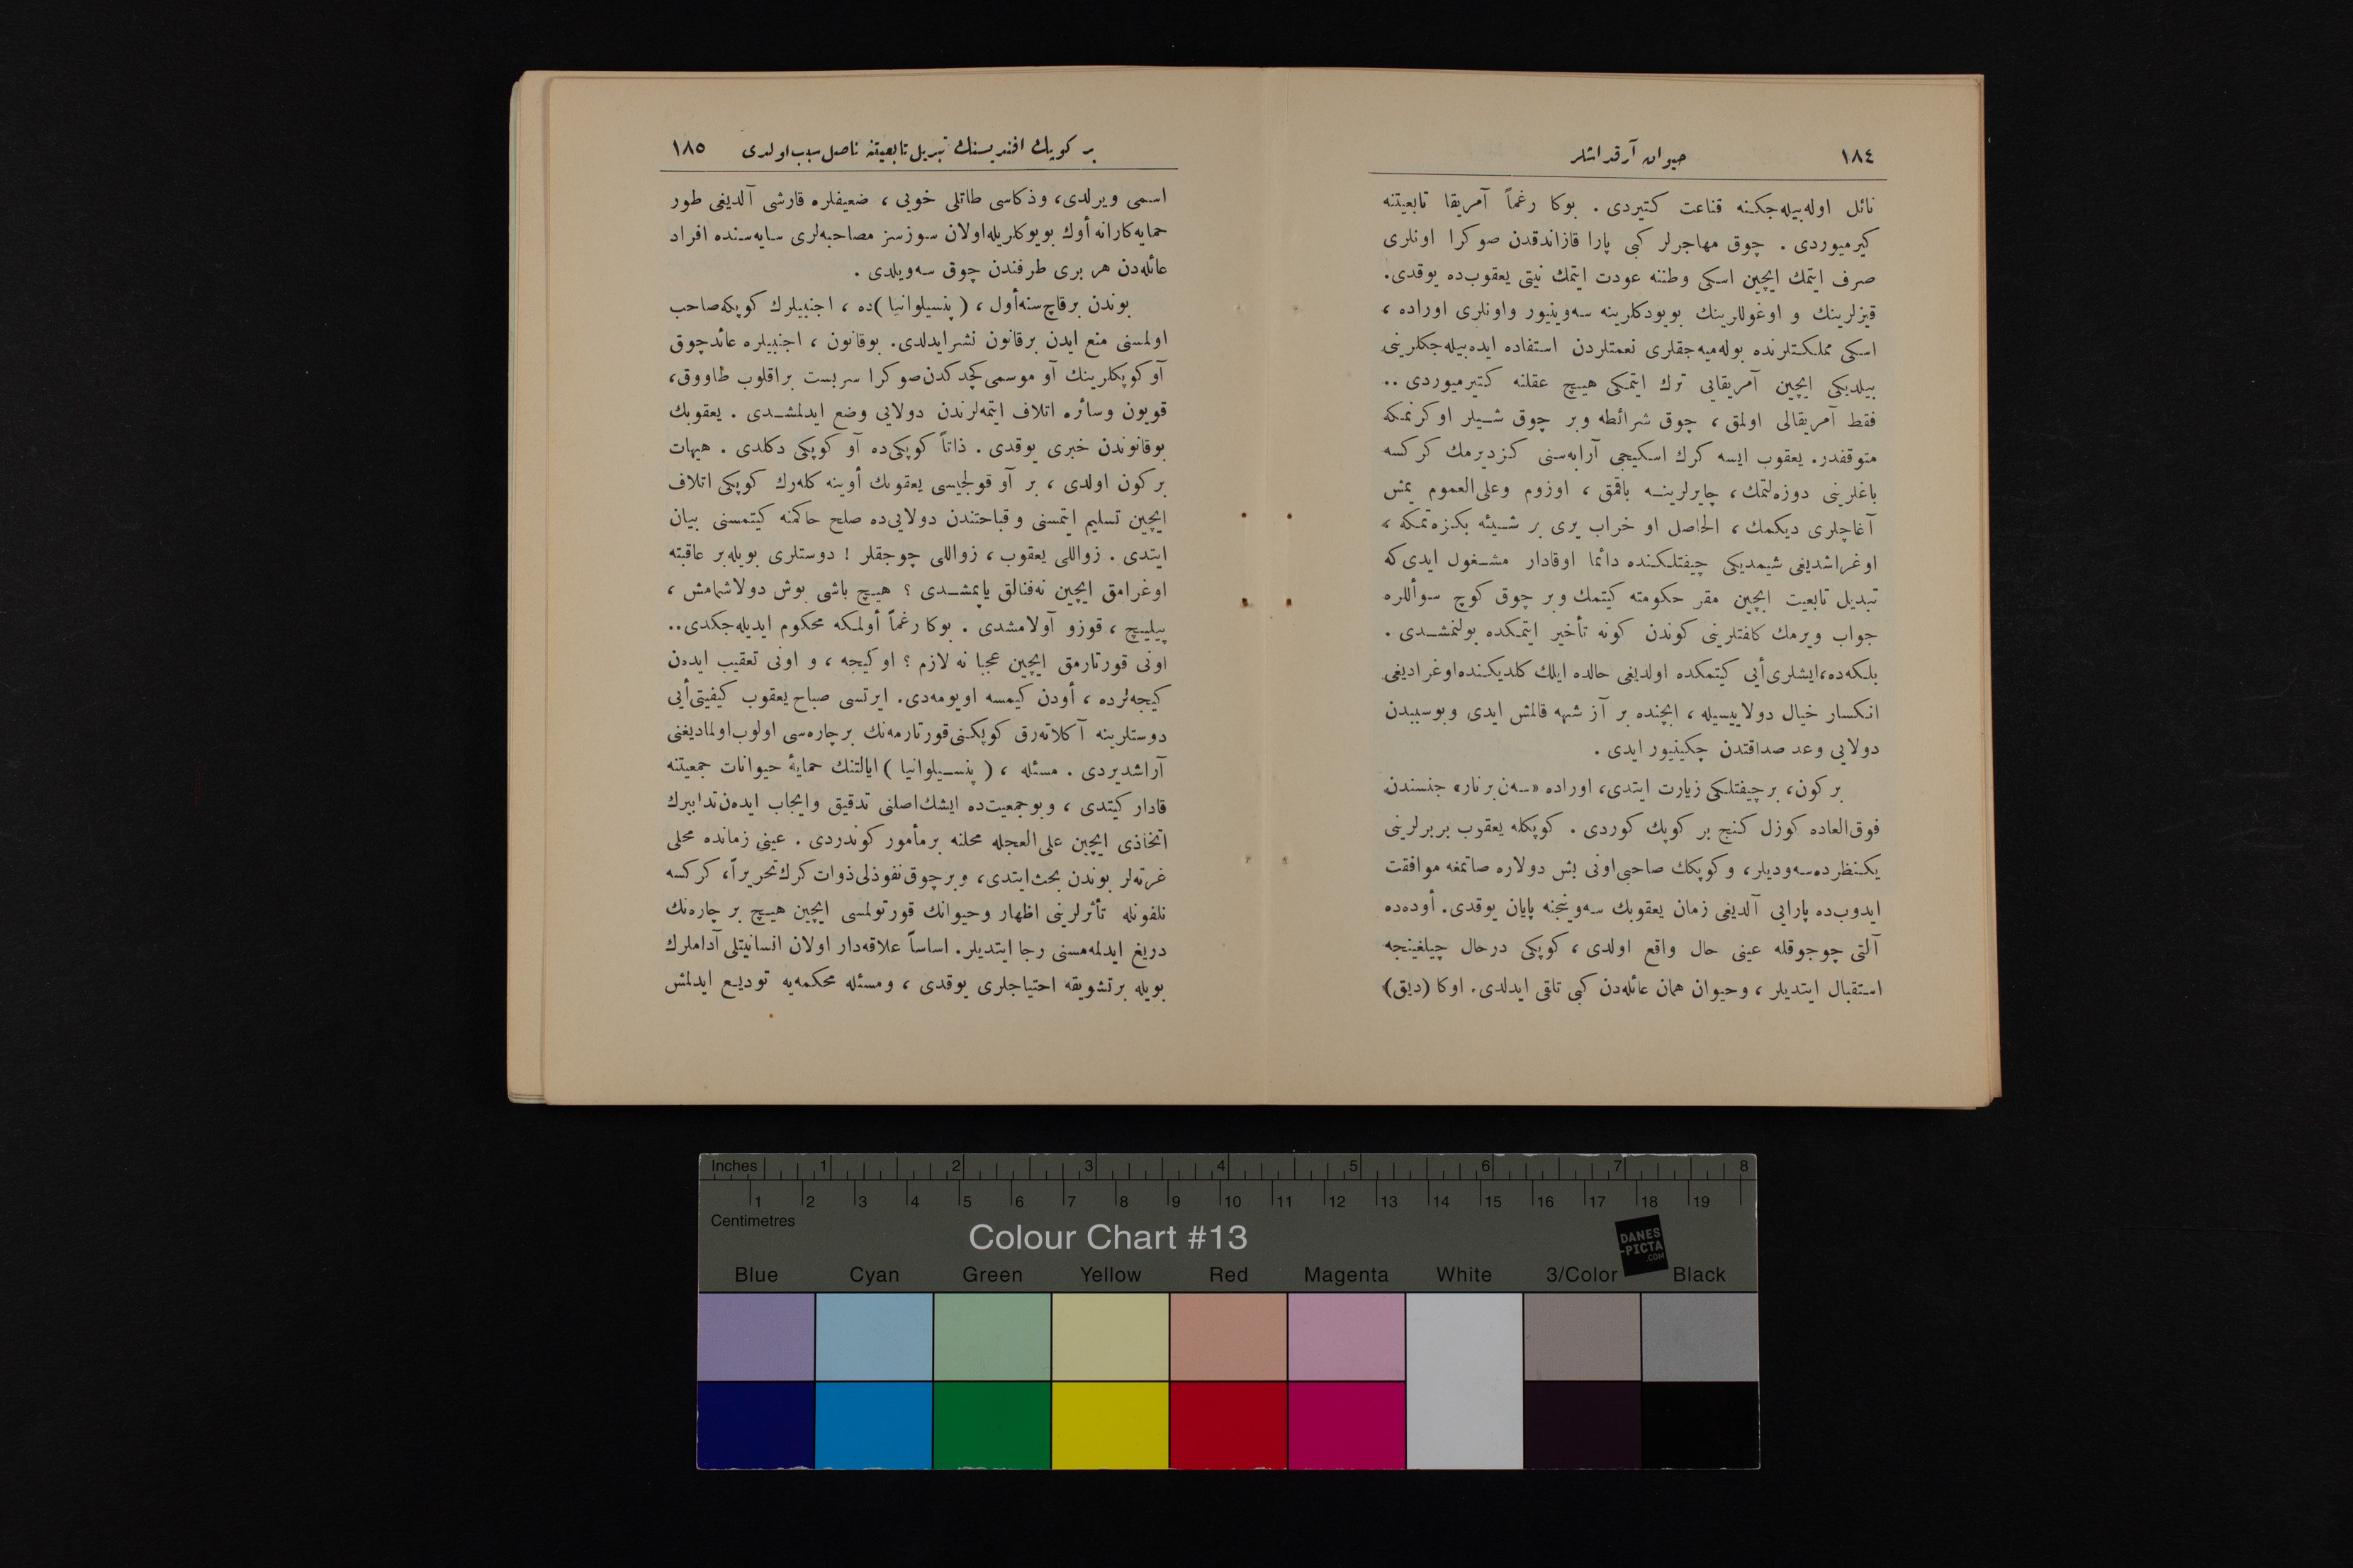 ١٨٤
حيوان آرقداشلر
نائل اوله‌بيله‌جكنه قناعت كتيردی . بوكا رغماً آمريقا تابعيتنه
كيرميوردی . چوق مهاجرلر كبی پارا قازاندقدن صوكرا اونلری
صرف ايتمك ايچين اسكی وطننه عودت ايتمك نيتی يعقوب‌ده يوقدی.
قيزلرينك و اوغوللرينك بويودكلرينه سه‌وينيور واونلری اوراده ،
اسكی مملكتلرنده بوله‌ميه‌جقلری نعمتلردن استفاده ايده‌بيله‌جكلرينی
بيلديكی ايچين آمريقايی ترك ايتمكی هيچ عقلنه كتيرميوردی ..
فقط آمريقالی اولمق ، چوق شرائطه وبر چوق شيلر اوكرنمكه
متوقفدر. يعقوب ايسه كرك اسكيجی آرابه‌سنی كزديرمك كركسه
باغلرينی دوزه‌لتمك ، چايرلرينه باقمق ، اوزوم وعلی‌العموم يمش
آغاچلری ديكمك ، الحاصل او خراب يری بر شيئه بكزه‌تمكه ،
اوغراشديغی شيمديكی چيفتلكنده دائما اوقادار مشغول ايدی‌كه
تبديل تابعيت ايچين مقر حكومته كيتمك وبر چوق كوچ سوأللره
جواب ويرمك كلفتلرينی كوندن كونه تأخير ايتمكده بولنمشدی .
بلكه‌ده،ايشلری‌أيی كيتمكده اولديغی حالده ايلك كلديكنده‌اوغراديغی
انكسار خيال دولاييسيله ، ايچنده بر آز شبهه قالمش ايدی وبوسببدن
دولايی وعد صداقتدن چكينيور ايدی .
بر كون، برچيفتلكی زيارت ايتدی، اوراده «سه‌ن برنار» جنسندن
فوق‌العاده كوزل كنج بر كوپك كوردی . كوپكله يعقوب بربرلرينی
يكنظرده‌سه‌وديلر، وكوپكك صاحبی‌اونی بش دولاره صاتمغه موافقت
ايدوب‌ده پارايی آلديغی زمان يعقوبك سه‌وينجنه پايان يوقدی. أوده‌ده
آلتی چوجوقله عينی حال واقع اولدی ، كوپكی درحال چيلغينجه
استقبال ايتديلر ، وحيوان همان عائله‌دن كبی تلقی ايدلدی. اوكا (ديق)
بر كوپك افنديسنك تبديل تابعيتنه ناصل سبب اولدی
١٨٥
اسمی ويرلدی، وذكاسی طاتلی خويی ، ضعيفلره قارشی آلديغی طور
حمايه‌كارانه أوك بويوكلريله‌اولان سوزسز مصاحبه‌لری سايه‌سنده افراد
عائله‌دن هر بری طرفندن چوق سه‌ويلدی .
بوندن برقاچ‌سنه‌أول ، ( پنسيلوانيا )ده ، اجنبيلرك كوپكه‌صاحب
اولمسنی منع ايدن برقانون نشرايدلدی. بوقانون ، اجنبيلره عائدچوق
آو كوپكلرينك آو موسمی كچدكدن‌صوكرا سربست براقلوب طاووق،
قويون وسائره اتلاف ايتمه‌لرندن دولايی وضع ايدلمشدی . يعقوبك
بوقانوندن خبری يوقدی . ذاتاً كوپكی‌ده آو كوپكی دكلدی . هيهات
بركون اولدی ، بر آو قولجيسی يعقوبك أوينه كله‌رك كوپكی اتلاف
ايچين تسليم ايتمسنی وقباحتندن دولايی‌ده صلح حاكمنه كيتمسنی بيان
ايتدی . زواللی يعقوب ، زواللی چوجقلر ! دوستلری بويله‌بر عاقبته
اوغرامق ايچين نه‌فنالق ياپمشدی ؟ هيچ باشی بوش دولاشمامش ،
پيليچ ، قوزو آولامشدی . بوكا رغماً أولمكه محكوم ايديله‌جكدی..
اونی قورتارمق ايچين عجبا نه لازم ؟ اوكيجه ، و اونی تعقيب ايده‌ن
كيجه‌لرده ، أودن كيمسه اويومه‌دی. ايرتسی صباح يعقوب كيفيتی‌أيی
دوستلرينه آكلاته‌رق كوپكنی‌قورتارمه‌نك برچاره‌سی اولوب‌اولماديغنی
آراشديردی . مسئله ، ( پنسيلوانيا ) ايالتنك حمايهٔ حيوانات جمعيتنه
قادار كيتدی ، وبوجمعيت‌ده ايشك‌اصلنی تدقيق وايجاب ايده‌ن‌تدابيرك
اتخاذی ايچين علی‌العجله محلنه برمأمور كوندردی . عينی زمانده محلی
غزته‌لر بوندن بحث‌ايتدی، وبرچوق‌نفوذلی‌ذوات كرك‌تحريراً، كركسه
تلفونله تأثرلرينی اظهار وحيوانك قورتولمسی ايچين هيچ بر چاره‌نك
دريغ ايدلمه‌مسنی رجا ايتديلر. اساساً علاقه‌دار اولان انسانيتلی آداملرك
بويله برتشويقه احتياجلری يوقدی ، ومسئله محكمه‌يه توديع ايدلمش
Inches 1 2 3 4 5 6 7 8
1 2 3 4 5 6 7 8 9 10 11 12 13 14 15 16 17 18 19
Centimetres
Colour Chart #13
DANES
-PICTA
.COM
Blue Cyan Green Yellow Red Magenta White 3/Color Black